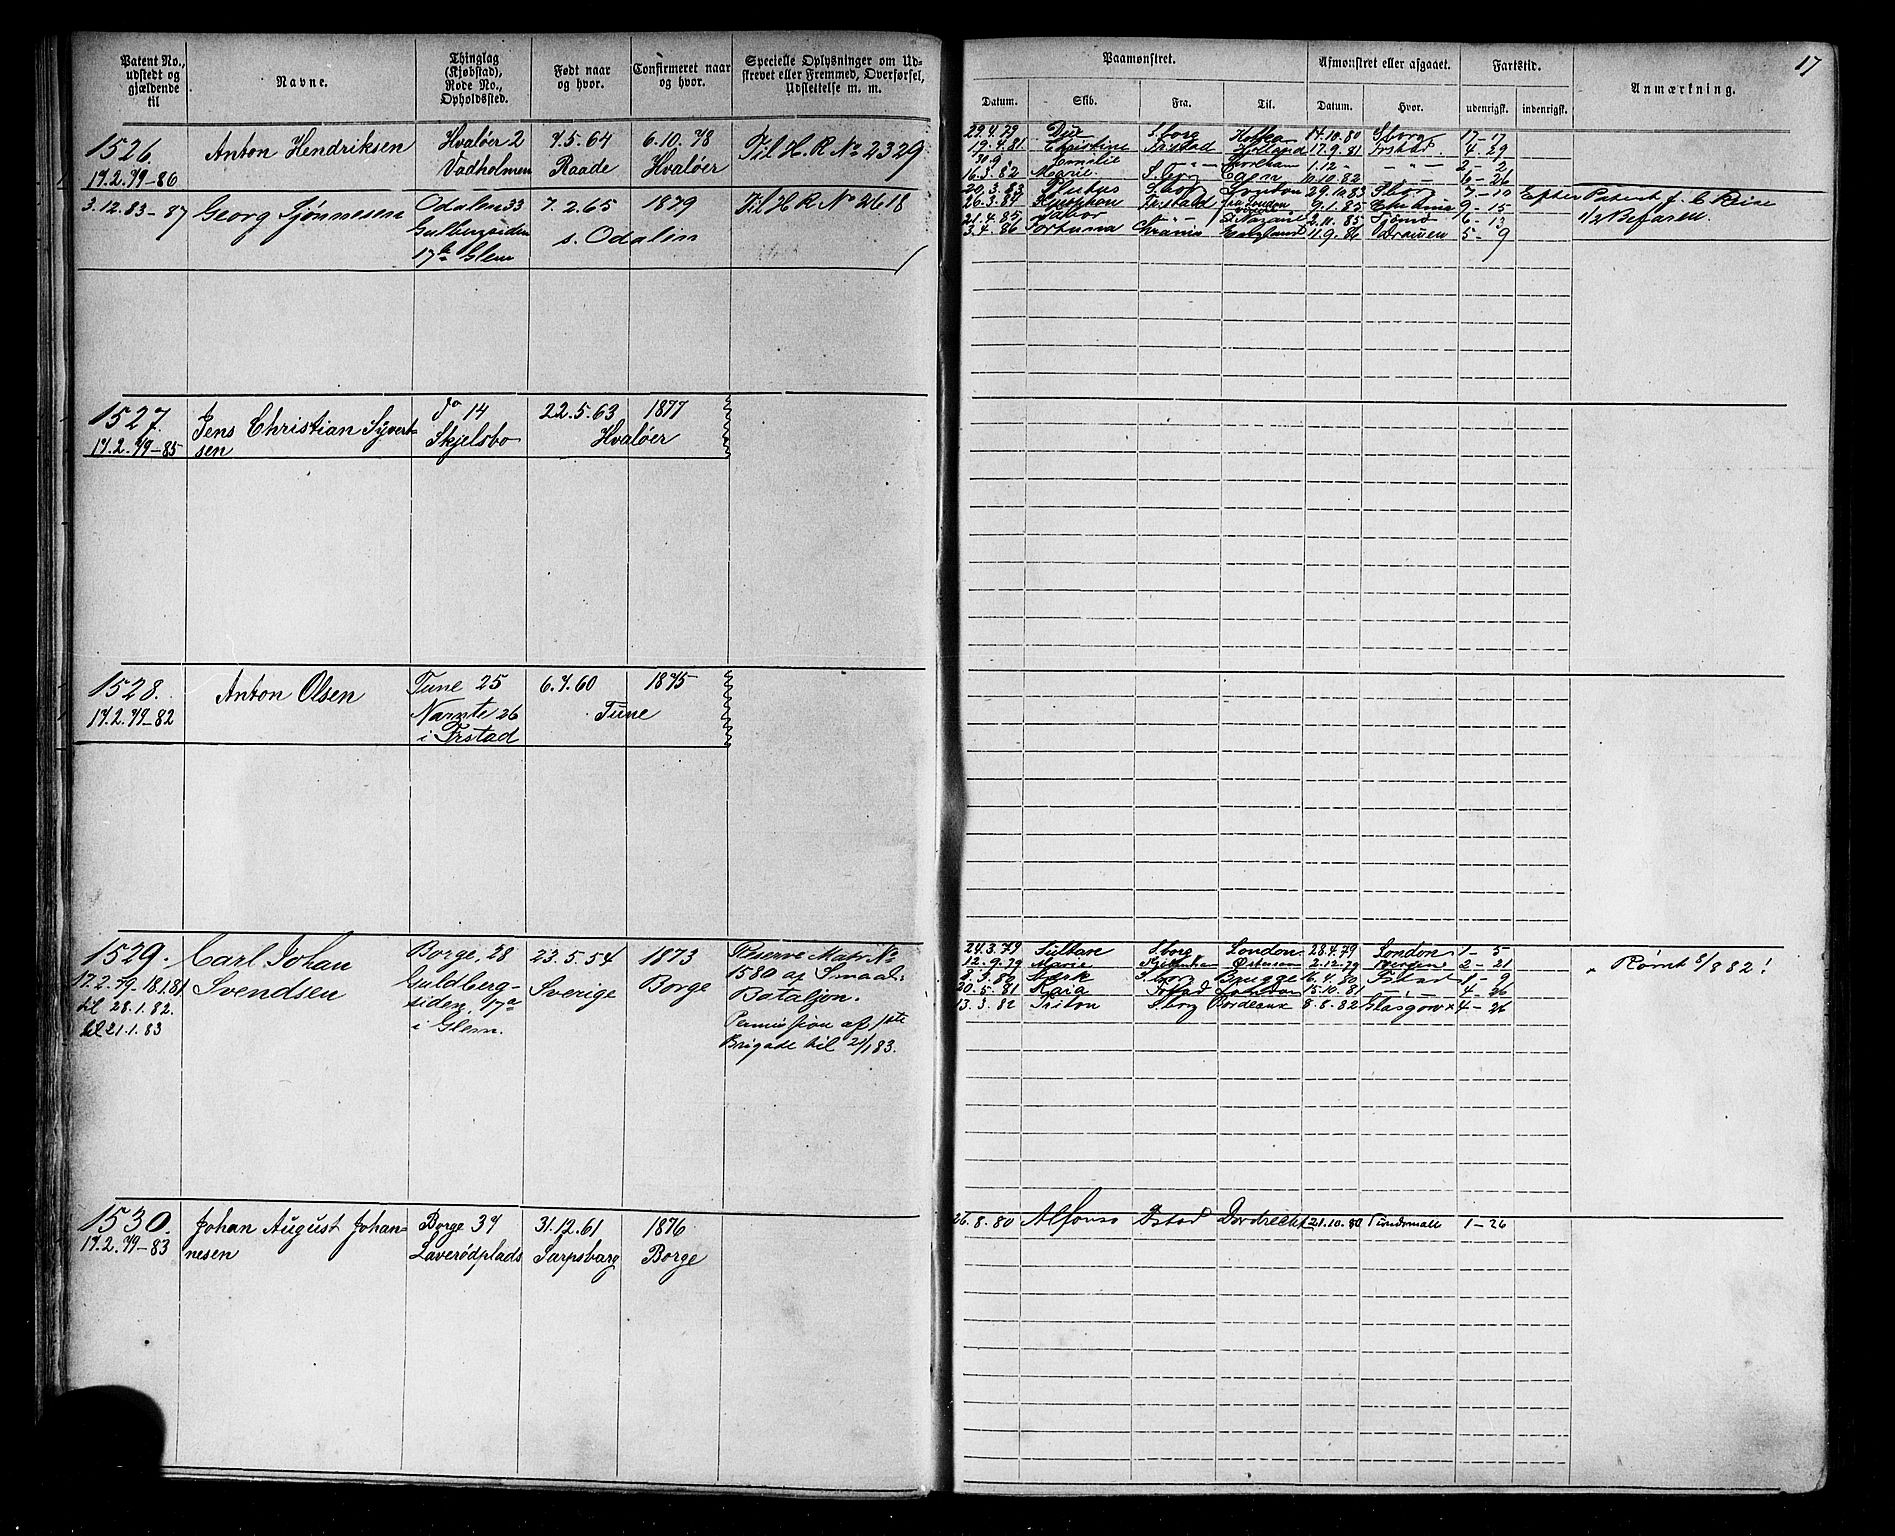 17
Patent No., udstedt og gjældende til
Navne.
Thinglag (Kjøbstad), Rode No., Opholdssted.
Født naar og hvor.
Confirmeret naar og hvor.
Specielle Oplysninger om Udskrevet eller Fremmed, Overførsel, Udslettelse m. m.
Paamønstret.
Afmønstret eller afgaaet.
Fartstid.
Anmærkning.
Datum. Skib. Fra. Til. Datum. Hvor. udenrigsk. indenrigsk.
1526. Anton Hendriksen Hvaløer 2 7.5.64 6.10.78 Til H. R No 2329
17.2.79-86 Vadholmen Raade Hvaløer
29.4.79 Sborg 14.10.80 Sborg 17-17
19.4.81 Christine Frstad Holland 17.9.81 Frstad 4-29
Emilie 1.12 2-2
16.3.82 Marie Sborg Caen 10.10.82 6-26
3.12.83-87 Georg Tjønnesen Odalen 33 7.2.65 1879 Til H R No 2618
Gulbergsiden s. Odalin
17a Glem
20.3.83 Sborg London 29.10.83 Sborg 7-10 Efter Patent f. C Rise
26.3.84 London 9.1.85 9-15 1/2 Befaren.
21.4.85 Tabor St Nazaire 2.11.85 6-12
3.4.86 Fortuna Chrania England 11.9.86 Drammen 5-9
1527. Jens Christian Syvert- Do 14 22.5.63 1877
17.2.79-85 sen Skjelsbo Hvaløer
1528. Anton Olsen Tune 25 6.7.60 1875
17.2.79-82 Narnte 26 Tune
i Frstad
1529. Carl Johan Borge, 28 23.5.54 1873 Reserve Matr. No
17.2.79-18.1.81 Svendsen Guldberg- Sverige Borge 1580 af Smaal.
til 28.1.82. siden, 17a Bataljon.
til 21.1.83 i Glem. Permission af 1ste
Brigade til 21/1 83.
24.3.79 Sultane Sborg London 28.4.79 London 1-5
12.9.79 Marie 2.12.79 2-21 Rømt 8/8 82!
Sborg Brügge Frstad 1-9
20.5.81 Kaia Frstad London 15.10.81 4-26
13.3.82 Triton Sborg Bordeaux 8.8.82 Glasgow x 4-26
1530. Johan August Johan- Borge 34 31.12.61 1876
17.2.79-83 nesen Laverødplads Sarpsborg Borge
26.8.80 Alfonso Frstad Dordrecht 21.10.80 Sundsvall 1-26